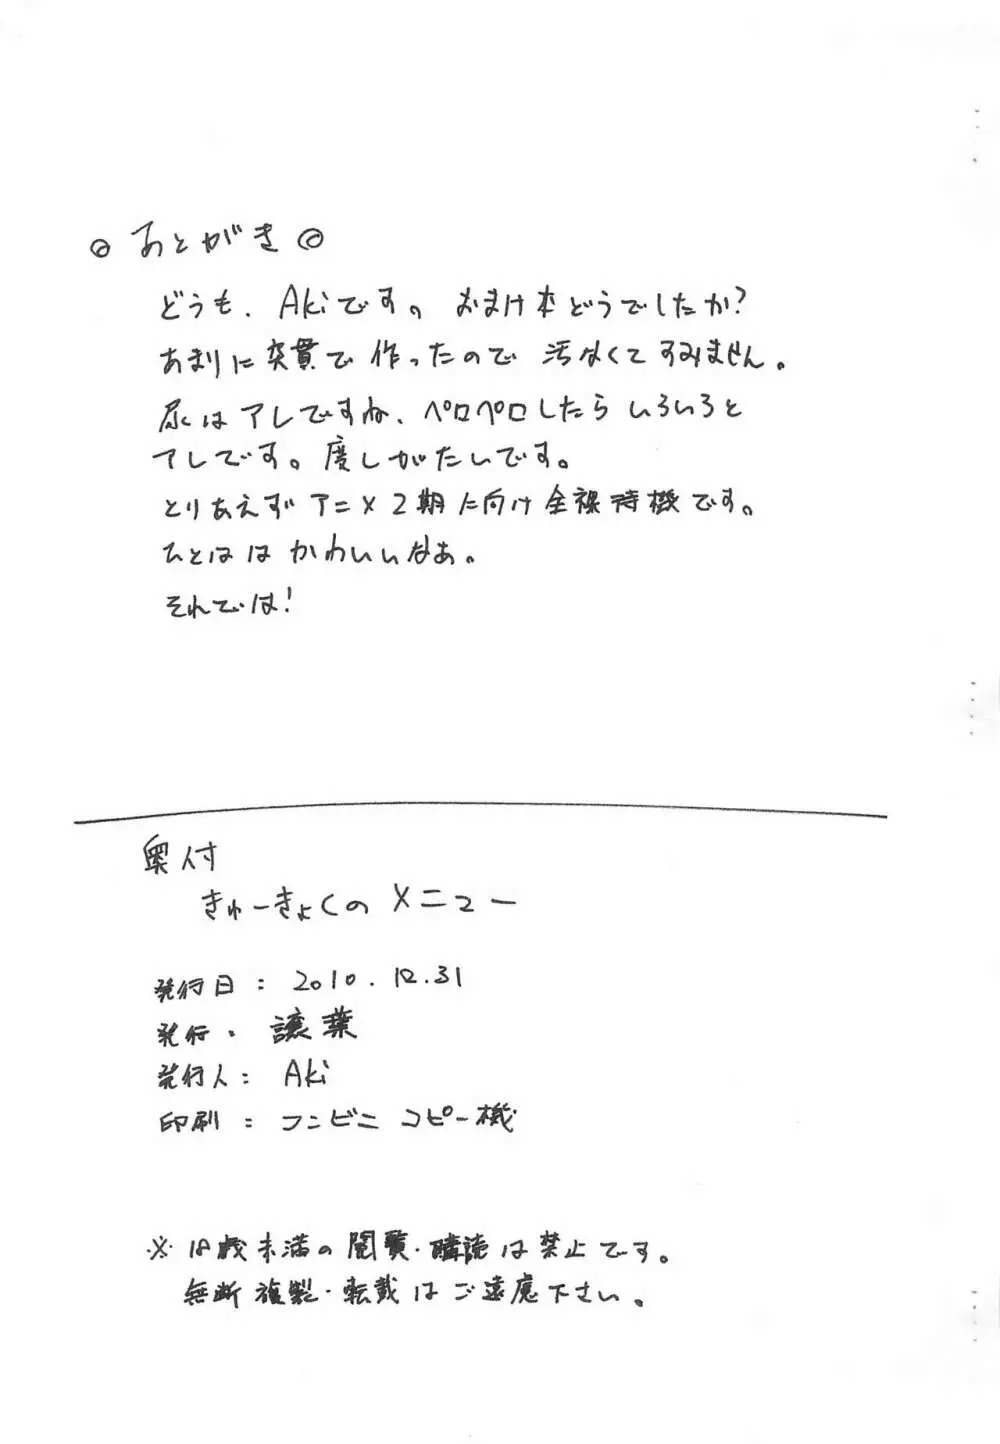 ◎ あとがき ◎
どうも、Akiです。おまけ本どうでしたか?
あまりに突貫で作ったので汚なくてすみません。
尿はアレですね、ペロペロしたらいろいろと
アレです。度しがたいです。
とりあえずアニメ2期に向け全裸待機です。
ひとははかわいいなあ。
それでは!
奥付
きゅーきょくのメニュー
発行日:2010.12.31
発行:譲葉
発行人:Aki
印刷:コンビニコピー機
※18歳未満の閲覧・購読は禁止です。
無断複製・転載はご遠慮下さい。